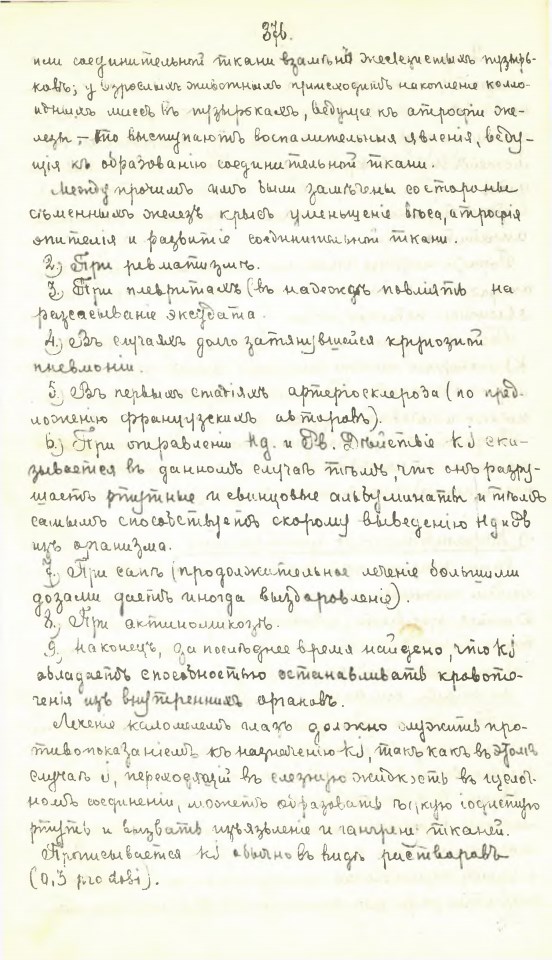 376.
или соединительной ткани взамѣнъ железистыхъ пузырь-
ковъ; у взрослыхъ животныхъ происходитъ накопленіе колло-
идныхъ массъ въ пузырькахъ, ведущее къ атрофіи же-
лезы, – то выступаютъ воспалительныя явленія, веду-
щія къ образованію соединительной ткани.
Между прочимъ имъ были замѣчены со стороны
сѣменныхъ железъ крысъ уменьшеніе вѣса, атрофія
эпителія и развитіе соединительной ткани.
2) При ревматизмѣ.
3) При плевритахъ (въ надеждѣ повліять на
разсасываніе эксудата.
4) Въ случаяхъ долго затянувшейся крупозной
пневмоніи.
5) Въ первыхъ стадіяхъ артеріосклероза (по пред-
ложенію французскихъ авторовъ).
6) При отравленіи Hg. и Pb. Дѣйствіе KJ ска-
зывается въ данномъ случаѣ тѣмъ, что онъ разру-
шаетъ ртутные и свинцовые альбуминаты и тѣмъ
самымъ способствуетъ скорому выведенію Hg и Pb
изъ организма.
7) При сапѣ (продолжительное леченіе большими
дозами даетъ иногда выздоровленіе).
8) При актиномикозѣ.
9) Наконецъ, за послѣднее время найдено, что KJ
обладаетъ способностью останавливать кровоте-
ченія изъ внутреннихъ органовъ.
Леченіе каломелемъ глазъ должно служить про-
тивопоказаніемъ къ назначенію KJ, такъ какъ въ этомъ
случаѣ J, переходящій въ слезную жидкость въ щелоч-
номъ соединеніи, можетъ образовать ѣдкую іодистую
ртуть и вызвать изъязвленіе и гангрену тканей.
Прописывается KJ обычно въ видѣ растворовъ
(0,3 pro dosi).